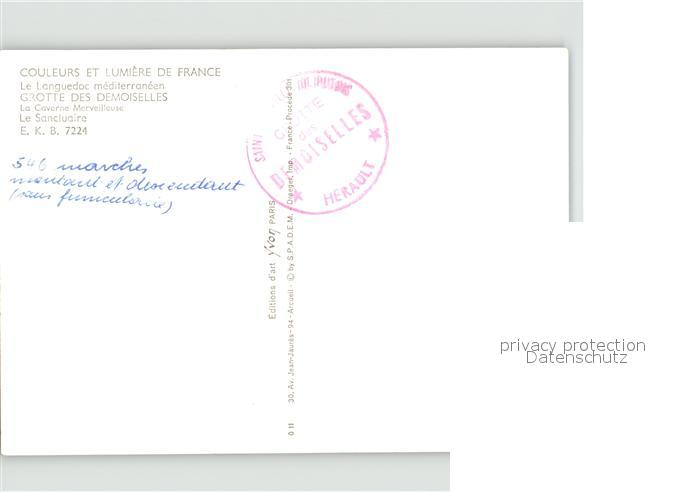 COULEURS ET LUMIÈRE DE FRANCE
Le Languedoc méditerranéen
GROTTE DES DEMOISELLES
La Caverne Merveilleuse
Le Sanctuaire
E. K. B. 7224
546 marches
montant et descendant
(sans funiculaire)
SAINT
GROTTE
des
DEMOISELLES
HERAULT
Editions d'art yvon PARIS
30, Av. Jean-Jaurès-94 - Arcueil - © by S.P.A.D.E.M. - Draeger, Imp. - France - Procédé 301
0 11
privacy protection
Datenschutz